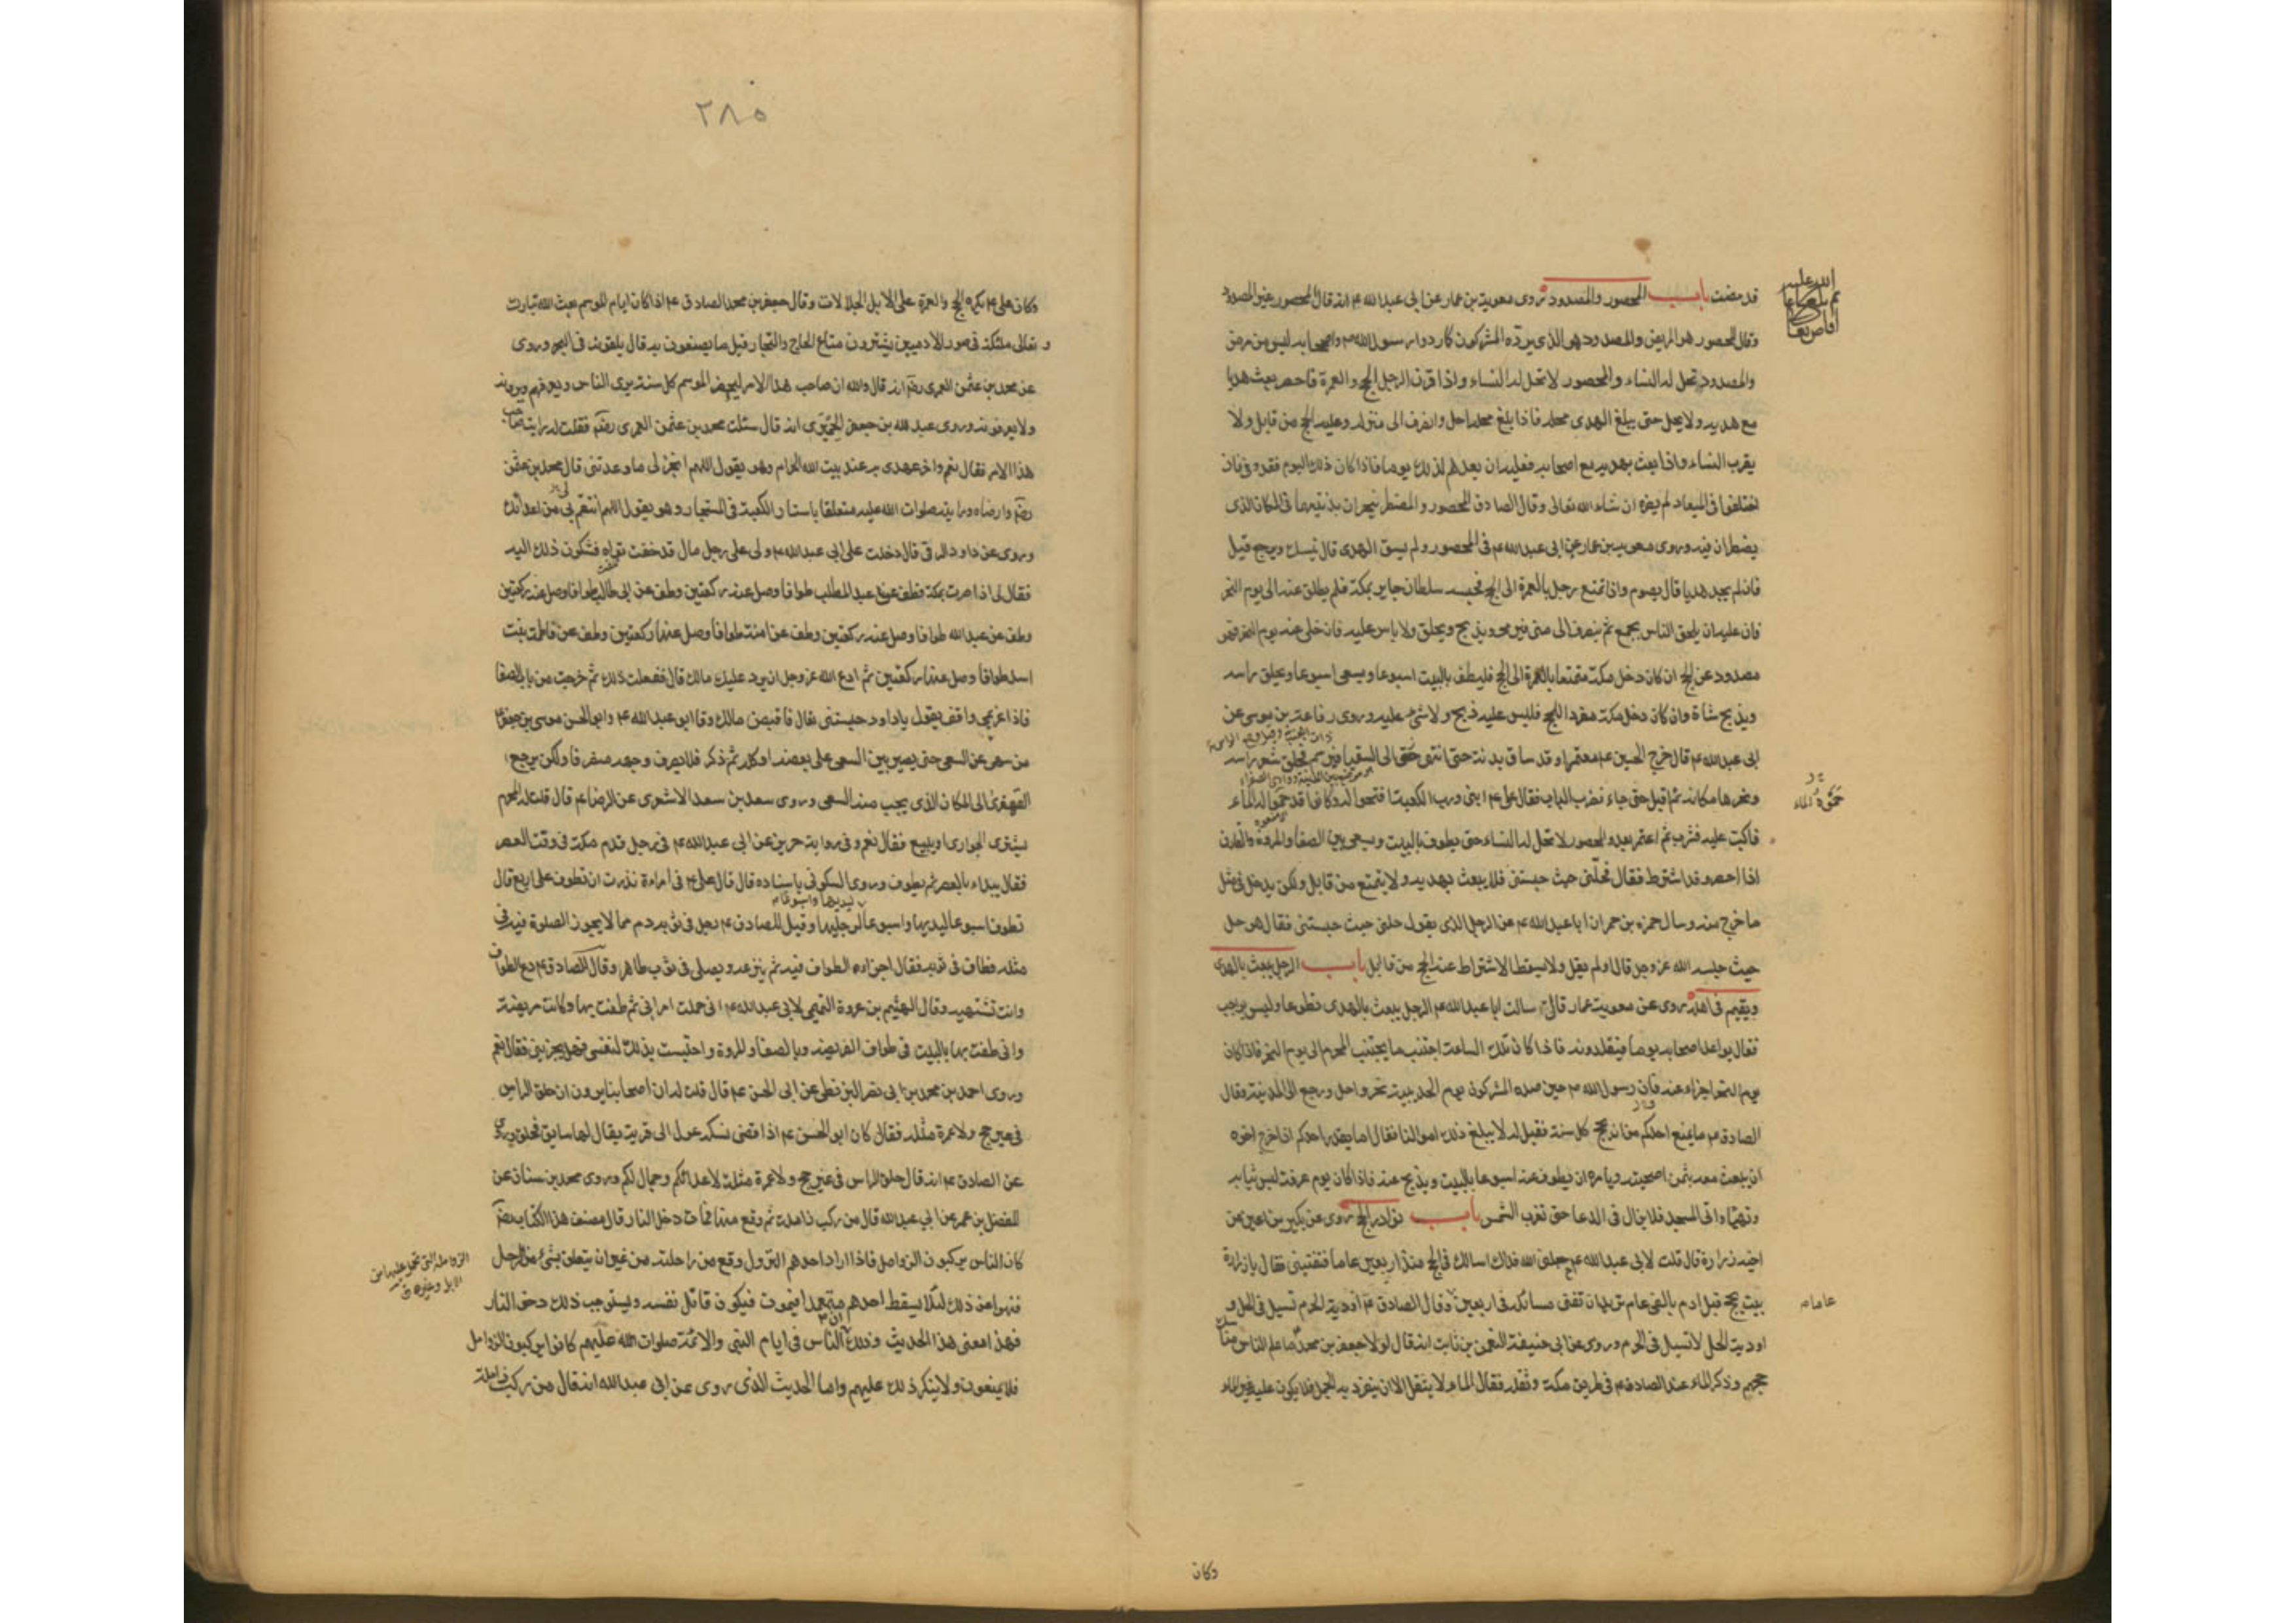 قد مضت باب المحصور والمصدود روى معوية بن عمار عن ابى عبدالله ع انه قال المحصور غير المصدود
وقال المحصور هو المريض والمصدود هو الذى يرده المشركون كما ردوا رسول الله ص واصحابه ليس من مرض
والمصدود تحل له النساء والمحصور لا تحل له النساء واذا قرن الرجل الحج والعمرة فاحصر بعث هديا
مع هديه ولا يحل حتى يبلغ الهدى محله فاذا بلغ محله احل وانصرف الى منزله وعليه الحج من قابل ولا
يقرب النساء واذا بعث بهديه مع اصحابه فعليه ان يعدهم لذلك يوما فاذا كان ذلك اليوم فقد وفى فان
اختلفوا فى الميعاد لم يضره ان شاء الله تعالى وقال الصادق المحصور والمضطر ينحران بدنتيهما فى المكان الذى
يضطران فيه وروى معوية بن عمار عن ابى عبدالله ع فى المحصور ولم يسق الهدى قال ينسك ويرجع قيل
فان لم يجد هديا قال يصوم واذا تمتع رجل بالعمرة الى الحج فحبسه سلطان جاير بمكة فلم يطلق عنه الى يوم النحر
فان عليه ان يلحق الناس بجمع ثم ينصرف الى منى فيرمى ويذبح ويحلق ولا باس عليه فان خلى عنه يوم النفر فهو
مصدود عن الحج ان كان دخل مكة متمتعا بالعمرة الى الحج فليطف بالبيت اسبوعا ويسعى اسبوعا ويحلق راسه
ويذبح شاة وان كان دخل مكة مفردا للحج فليس عليه ذبح ولا شىء عليه وروى رفاعة بن موسى عن
ابى عبدالله ع قال خرج الحسين ع معتمرا وقد ساق بدنة حتى انتهى الى السقيا فبرسم فحلق شعر راسه
ونحرها مكانه ثم اقبل حتى جاء فضرب الباب فقال على ع ابنى ورب الكعبة افتحوا له وكانوا قد حموا له الماء
فاكب عليه فشرب ثم اعتمر بعد والمحصور لا تحل له النساء حتى يطوف بالبيت ويسعى بين الصفا والمروة والقارن
اذا احصر وقد اشترط فقال فحلنى حيث حبستنى فلا يبعث بهديه ولا يتمتع من قابل ولكن يدخل فى مثل
ما خرج منه وسال حمزة بن حمران ابا عبدالله ع عن الرجل الذى يقول حلنى حيث حبستنى فقال هو حل
حيث حبسه الله عز وجل قال اولم يقل ولا يسقط الاشتراط عنه الحج من قابل باب الرجل يبعث بالهدى
ويقيم فى اهله روى عن معوية عمار قال سالت ابا عبدالله ع الرجل يبعث بالهدى تطوعا وليس بواجب
فقال يواعد اصحابه يوما فيقلدونه فاذا كان تلك الساعة اجتنب ما يجتنب المحرم الى يوم النحر فاذا كان
يوم النحر اجزاء عنه فان رسول الله ص حين صده المشركون يوم الحديبية نحر واحل ورجع الى المدينة وقال
الصادق ع ما يمنع احدكم من ان يحج كل سنة فقيل له لا يبلغ ذلك اموالنا فقال اما يقدر احدكم اذا خرج اخوه
ان يبعث معه بثمن اضحيته ويامره ان يطوف عنه اسبوعا بالبيت ويذبح عنه فاذا كان يوم عرفة لبس ثيابه
وتهيا واتى المسجد فلا يزال فى الدعا حتى تغرب الشمس باب نوادر الحج روى عن بكير بن اعين عن
اخيه زرارة قال قلت لابى عبدالله ع جعلنى الله فداك اسالك فى الحج منذ اربعين عاما فتفتينى فقال يا زرارة
بيت يحج قبل ادم بالفى عام تريد ان تفنى مسائله فى اربعين وقال الصادق ع اودية الحرم تسيل فى الحل و
اودية الحل لا تسيل فى الحرم وروى عن ابى حنيفة النعمن بن ثابت انه قال لولا جعفر بن محمد ما علم الناس مناسك
حجهم وذكر الماء عند الصادق ع فى طريق مكة وثقله فقال الماء لا يثقل الا ان ينفرد به الجمل فلا يكون عليه غير الماء
عاماه
وكان
٢٨٥
وكان على ع يكره الحج والعمرة على الابل الجلالات وقال جعفر بن محمد الصادق ع اذا كان ايام الموسم بعث الله تبارك
و تعالى ملئكة فى صور الادميين يشترون متاع الحاج والتجار قيل ما يصنعون به قال يلقونه فى البحر وروى
عن محمد بن عثمن العمرى رضه انه قال والله ان صاحب هذا الامر ليحضر الموسم كل سنة يرى الناس ويعرفهم ويرونه
ولا يعرفونه وروى عبدالله بن جعفر الحميرى انه قال سئلت محمد بن عثمن العمرى رضه فقلت له رايت صاحب
هذا الامر فقال نعم واخر عهدى به عند بيت الله الحرام وهو يقول اللهم انجز لى ما وعدتنى قال محمد بن عثمن
رضه وارضاه ورايته صلوات الله عليه متعلقا باستار الكعبة فى المستجار وهو يقول اللهم انتقم لى من اعدائك
وروى عن داود الرقى قال دخلت على ابى عبدالله ع ولى على رجل مال قد خفت تواه فشكوت ذلك اليه
فقال لى اذا صرت بمكة فطف عن عبد المطلب طوافا وصل عنه ركعتين وطف عن ابى طالب طوافا وصل عنه ركعتين
وطف عن عبدالله طوافا وصل عنه ركعتين وطف عن امنة طوافا وصل عنها ركعتين وطف عن فاطمة بنت
اسد طوافا وصل عنها ركعتين ثم ادع الله عز وجل ان يرد عليك مالك قال ففعلت ذلك ثم خرجت من باب الصفا
فاذا غريمى واقف يقول يا داود حبستنى تعال فاقبض مالك وقال ابو عبدالله ع وابو الحسن موسى بن جعفر ع
من سهى عن السعى حتى يصير بين السعى على بعضه او كله ثم ذكر فلا يصرف وجهه منصرفا ولكن يرجع
القهقرى الى المكان الذى يجب منه السعى وروى سعد بن سعد الاشعرى عن الرضا ع قال قلت له المحرم
يشترى الجوارى او يبيع فقال نعم وفى رواية حريز عن ابى عبدالله ع فى رجل قدم مكة فى وقت العصر
فقال يبداء بالعصر ثم يطوف وروى السكونى باسناده قال قال على ع فى امراءة نذرت ان تطوف على اربع قال
تطوف اسبوعا ليديها واسبوعا لرجليها وقيل للصادق ع رجل فى ثوبه دم مما لا يجوز الصلوة فيه فى
مثله فطاف فى ثوبه فقال اجزاه الطواف فيه ثم ينزعه ويصلى فى ثوب طاهر وقال الصادق ع دع الطواف
وانت تشتهيه وقال الهيثم بن عروة التميمى لابى عبدالله ع انى حملت امراتى ثم طفت بها وكانت مريضة
وانى طفت بها بالبيت فى طواف الفريضة وبالصفا والمروة واحتبست بذلك لنفسى فهل يجزينى فقال نعم
وروى احمد بن محمد بن ابى نصر البزنطى عن ابى الحسن ع قال قلت له ان اصحابنا يرون ان حلق الراس
فى غير حج ولا عمرة مثلة فقال كان ابو الحسن ع اذا قضى نسكه عدل الى قرية يقال لها ساية فحلق وروى
عن الصادق ع انه قال حلق الراس فى غير حج ولا عمرة مثلة لاعدائكم وجمال لكم وروى محمد بن سنان عن
المفضل بن عمر عن ابى عبدالله قال من ركب زاملة ثم وقع منها فمات دخل النار قال مصنف هذا الكتاب رضه
كان الناس يركبون الزوامل فاذا اراد احدهم النزول وقع من راحلته من غير ان يتعلق بشىء من الرحل
فنهوا عن ذلك لئلا يسقط احدهم متعمدا فيموت فيكون قاتل نفسه ويستوجب ذلك دخول النار
فهذا معنى هذا الحديث وذلك ان الناس فى ايام النبى والائمة صلوات الله عليهم كانوا يركبون الزوامل
فلا يمنعون ولا ينكر ذلك عليهم واما الحديث الذى روى عن ابى عبدالله انه قال من ركب زاملة